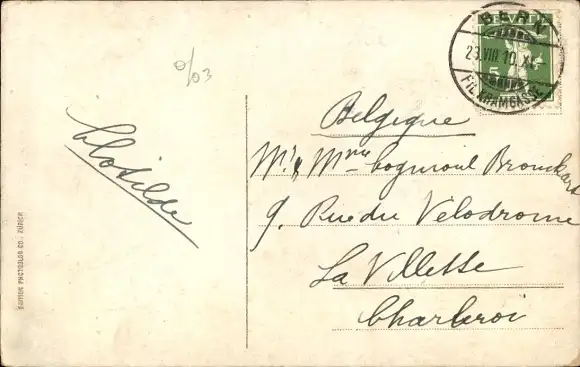 BERN
23.VIII.10.XI
FIL. KRAMGASSE
5
0/03
Clotilde
Belgique
Mr & Mme Bronckart
9. Rue du Vélodrome
La Villette
Charleroi